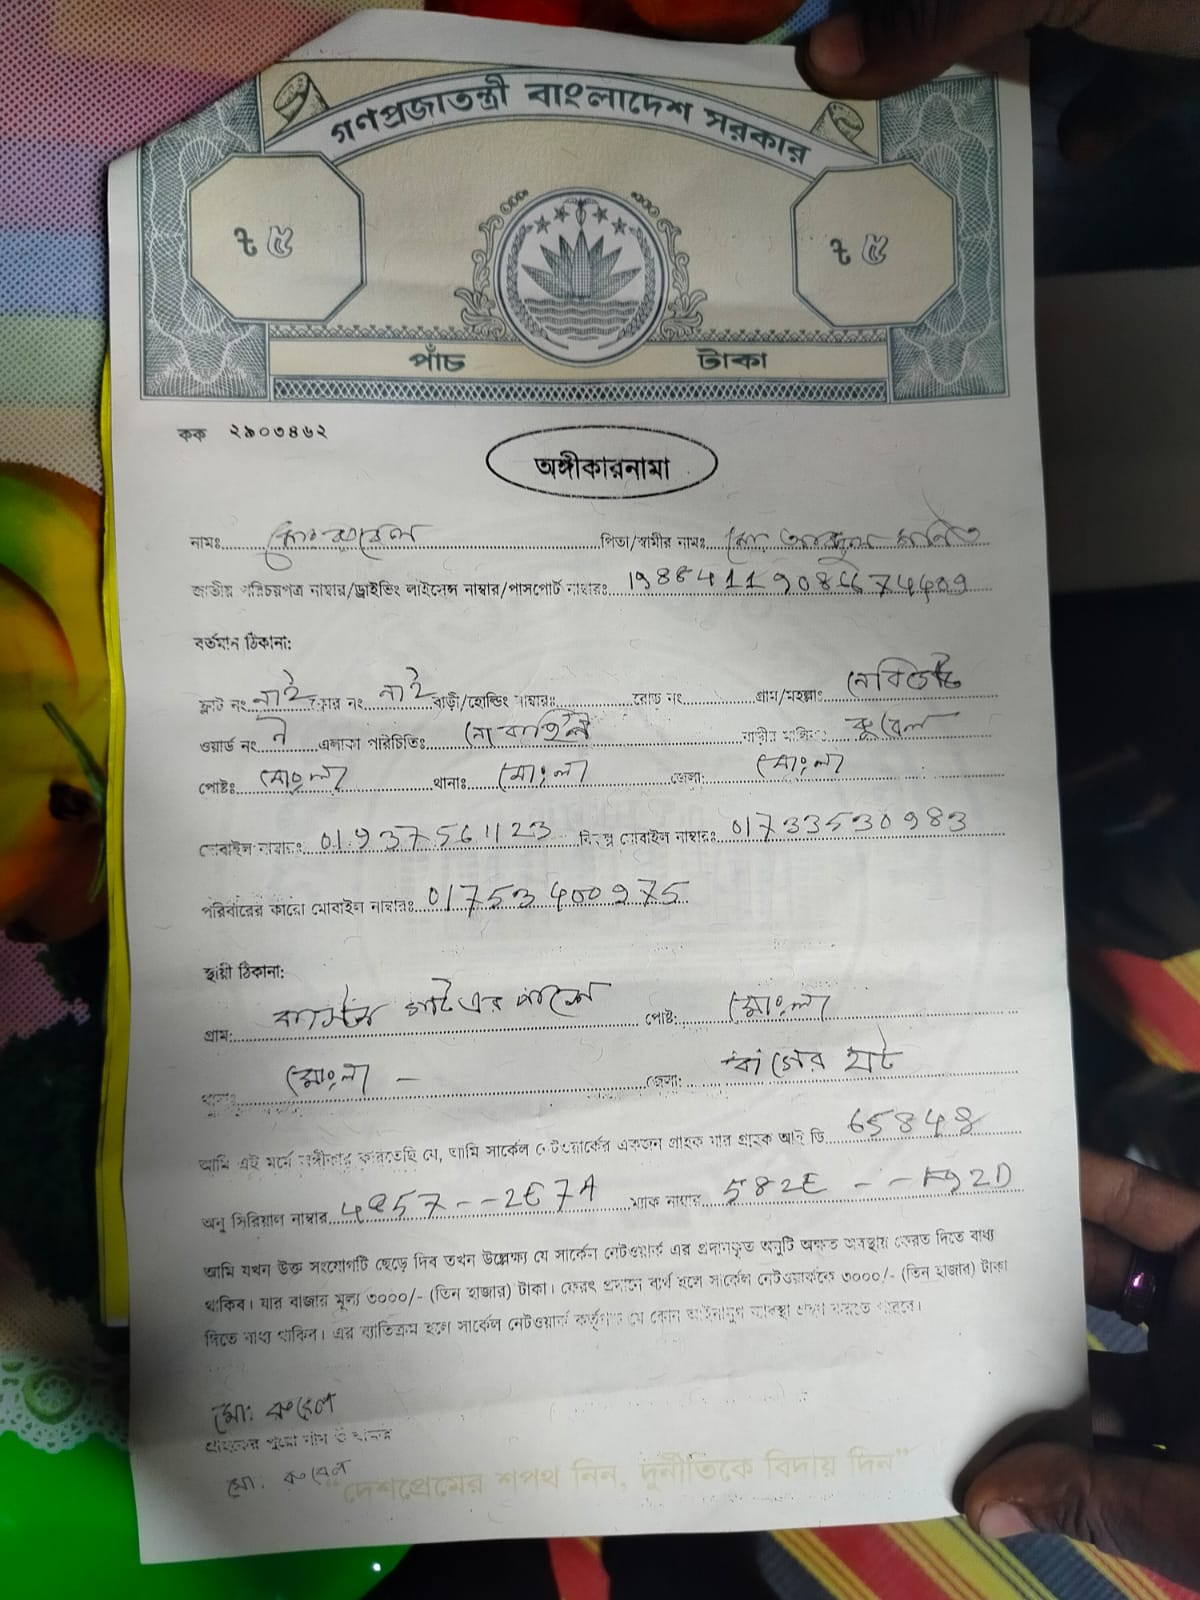 গণপ্রজাতন্ত্রী বাংলাদেশ সরকার
৳ ৫ ৳ ৫
পাঁচ টাকা
কক ২৯০৩৪৬২
অঙ্গীকারনামা
নামঃ পিতা/স্বামীর নামঃ মোঃ আব্দুল
জাতীয় পরিচয়পত্র নাম্বার/ড্রাইভিং লাইসেন্স নাম্বার/পাসপোর্ট নাম্বারঃ
বর্তমান ঠিকানা:
ফ্লাট নং নাই ফ্লোর নং নাই বাড়ী/হোল্ডিং নাম্বারঃ রোড নং গ্রাম/মহল্লাঃ
ওয়ার্ড নং এলাকা পরিচিতিঃ বাড়ীর মালিকঃ রুবেল
পোষ্টঃ মোংলা থানাঃ মোংলা জেলা: মোংলা
মোবাইল নাম্বারঃ 01937561123 বিকল্প মোবাইল নাম্বারঃ 01733530983
পরিবারের কারো মোবাইল নাম্বারঃ 01753400975
স্থায়ী ঠিকানা:
গ্রাম: পোষ্ট: মোংলা
থানা: মোংলা - জেলা: বাগের হাট
আমি এই মর্মে অঙ্গীকার করিতেছি যে, আমি সার্কেল নেটওয়ার্কের একজন গ্রাহক যার গ্রাহক আই ডি 65848
অনু সিরিয়াল নাম্বার 2E7A ম্যাক নাম্বার 582E - - F92D
আমি যখন উক্ত সংযোগটি ছেড়ে দিব তখন উল্লেক্ষ্য যে সার্কেল নেটওয়ার্ক এর প্রদানকৃত অনুটি অক্ষত অবস্থায় ফেরত দিতে বাধ্য
থাকিব। যার বাজার মূল্য ৩০০০/- (তিন হাজার) টাকা। ফেরৎ প্রদানে ব্যর্থ হলে সার্কেল নেটওয়ার্ককে ৩০০০/- (তিন হাজার) টাকা
দিতে বাধ্য থাকিব। এর ব্যাতিক্রম হলে সার্কেল নেটওয়ার্ক কর্তৃপক্ষ যে কোন আইনানুগ ব্যবস্থা গ্রহণ করতে পারবে।
মো: রুবেল
গ্রাহকের পুরো নাম ও স্বাক্ষর
মো: রুবেল
"দেশপ্রেমের শপথ নিন, দুর্নীতিকে বিদায় দিন"